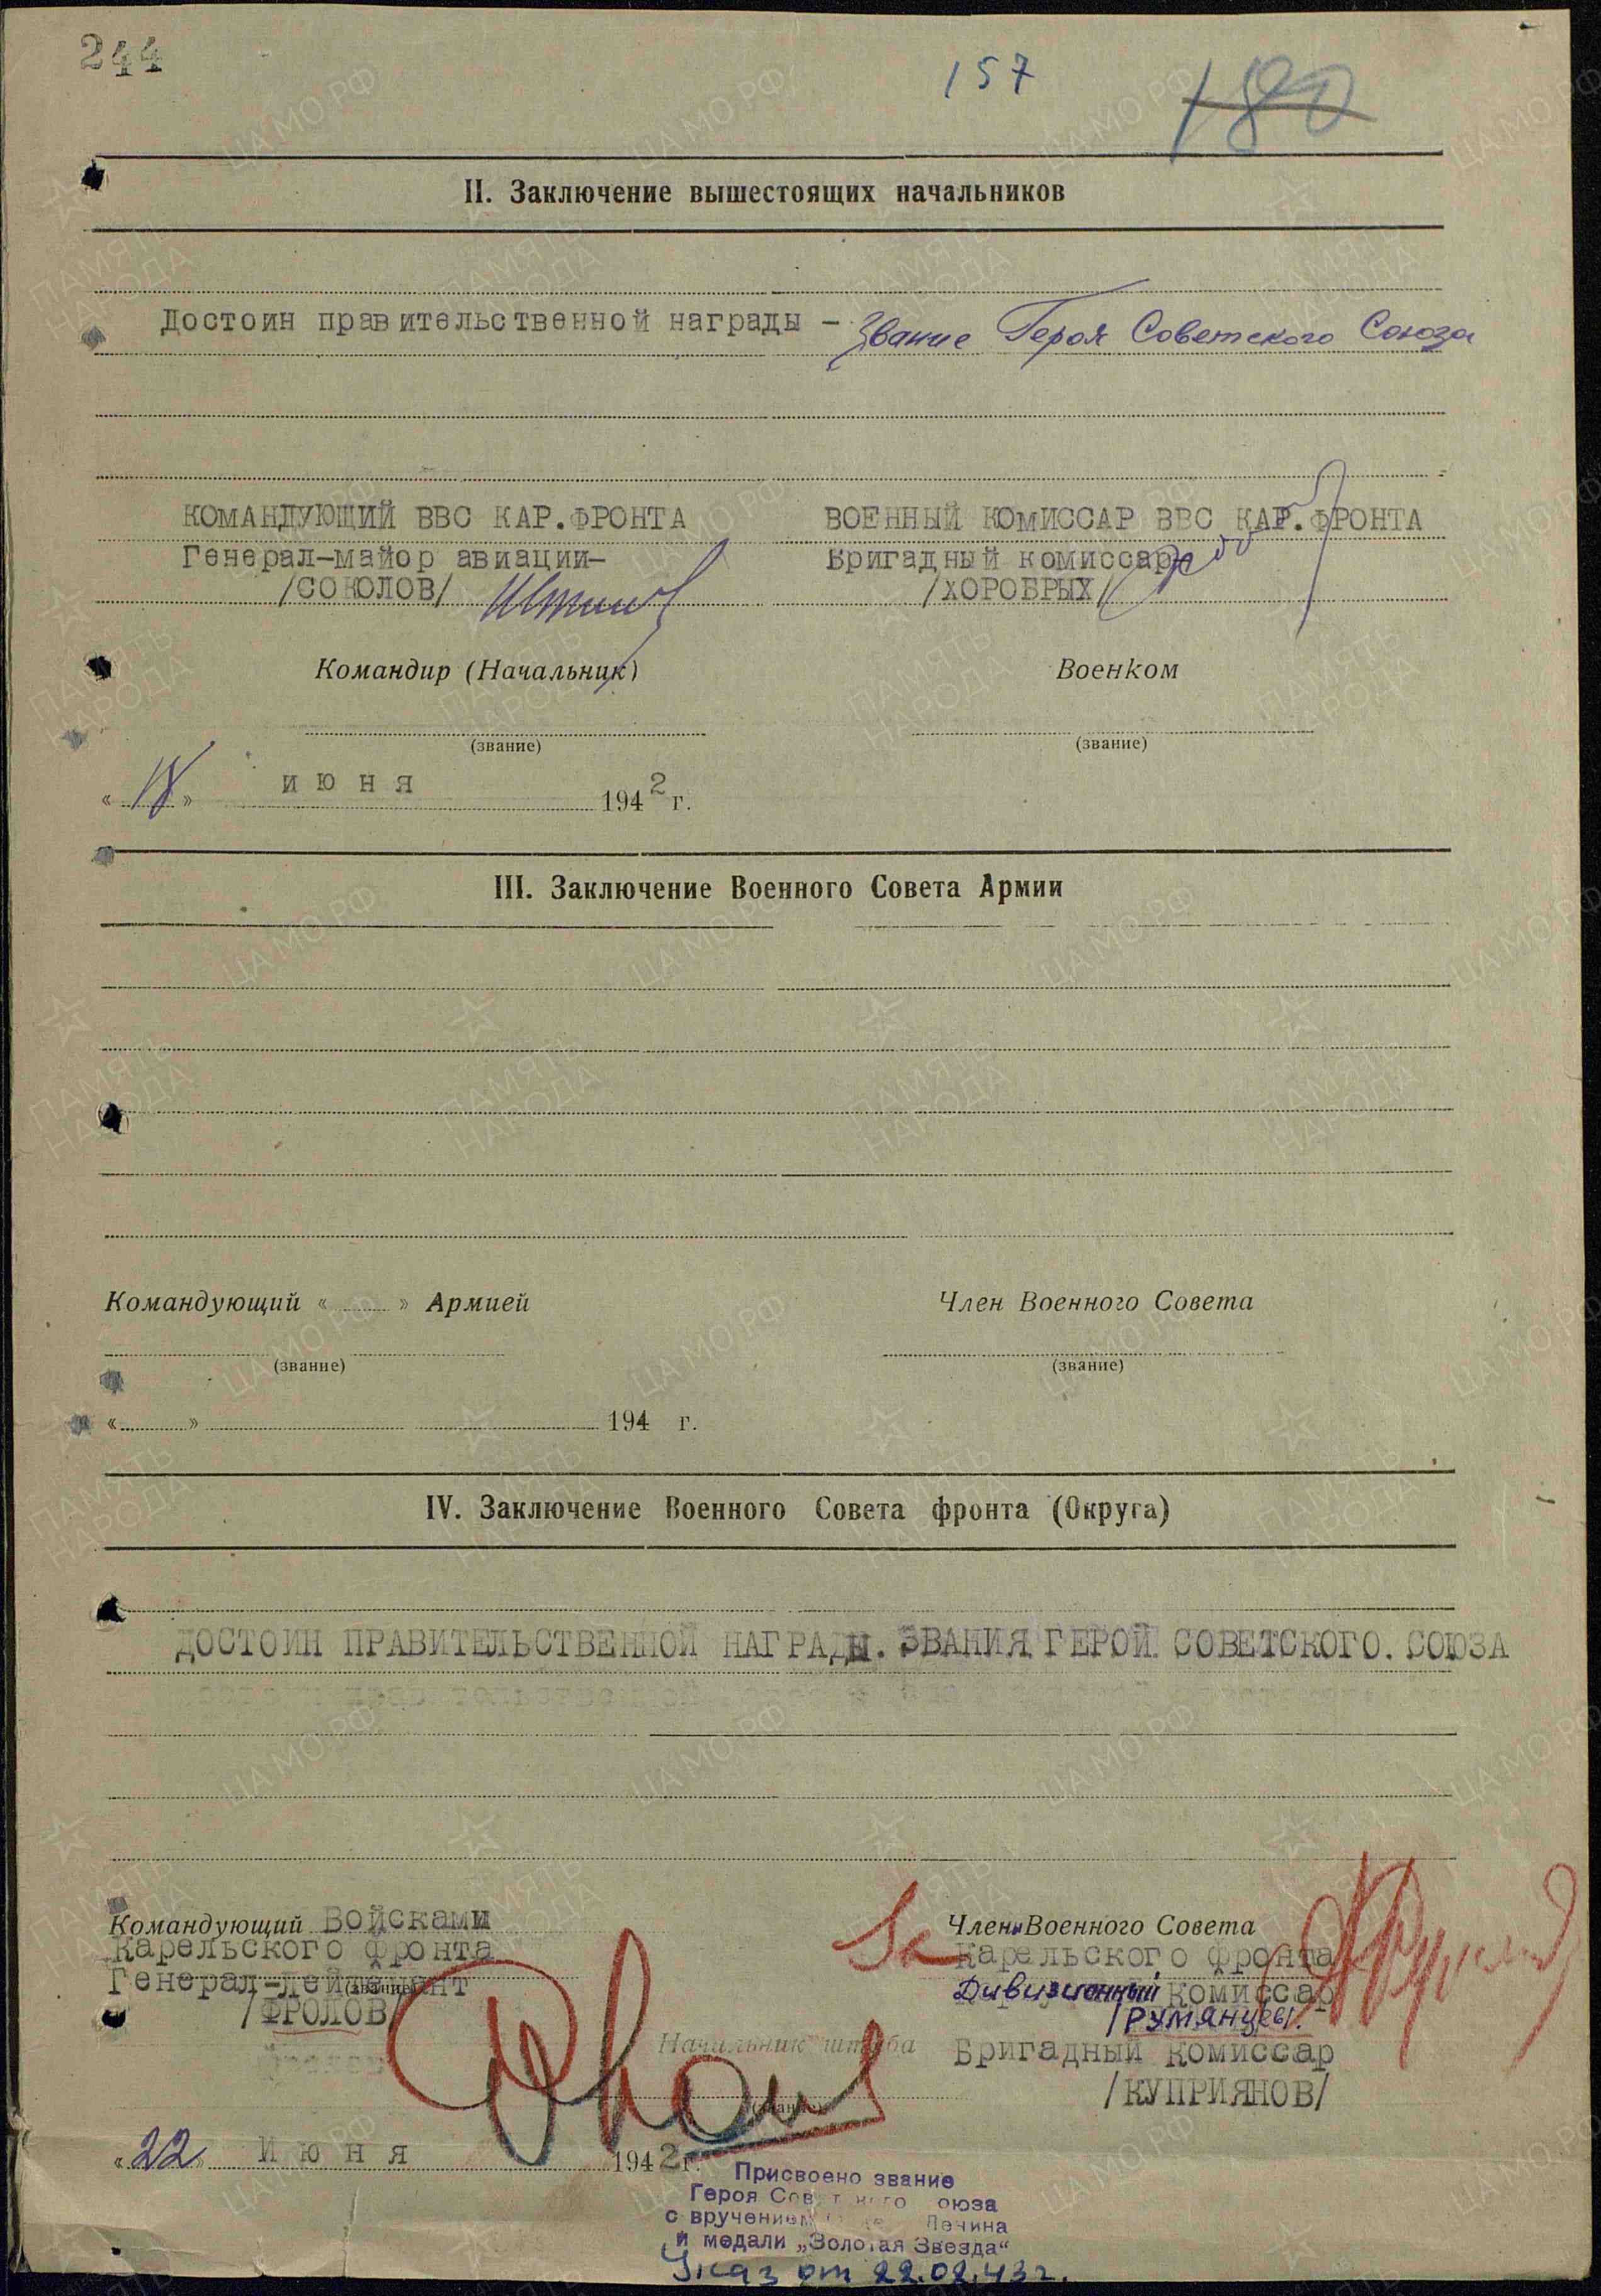 244
157
180
II. Заключение вышестоящих начальников
Достоин правительственной награды – Звание Героя Советского Союза
КОМАНДУЮЩИЙ ВВС КАР.ФРОНТА
Генерал-майор авиации-
/СОКОЛОВ/
ВОЕННЫЙ КОМИССАР ВВС КАР.ФРОНТА
Бригадный комиссар
/ХОРОБРЫХ/
Командир (Начальник)
Военком
(звание)
(звание)
«18» июня 1942 г.
III. Заключение Военного Совета Армии
Командующий « » Армией
Член Военного Совета
(звание)
(звание)
« » 194 г.
IV. Заключение Военного Совета фронта (Округа)
ДОСТОИН ПРАВИТЕЛЬСТВЕННОЙ НАГРАДЫ. ЗВАНИЯ ГЕРОЙ СОВЕТСКОГО. СОЮЗА
Командующий Войсками
Карельского фронта
Генерал-лейтенант
(звание)
/ФРОЛОВ/
За
Члены Военного Совета
Карельского фронта
Дивизионный Комиссар
/РУМЯНЦЕВ/.
Начальник штаба
Бригадный комиссар
(звание)
/КУПРИЯНОВ/
«22» Июня 1942 г.
Присвоено звание
Героя Советского Союза
с вручением Ленина
и медали „Золотая Звезда“
Указ от 22.02.43г.
ПАМЯТЬ НАРОДА
ЦАМО РФ